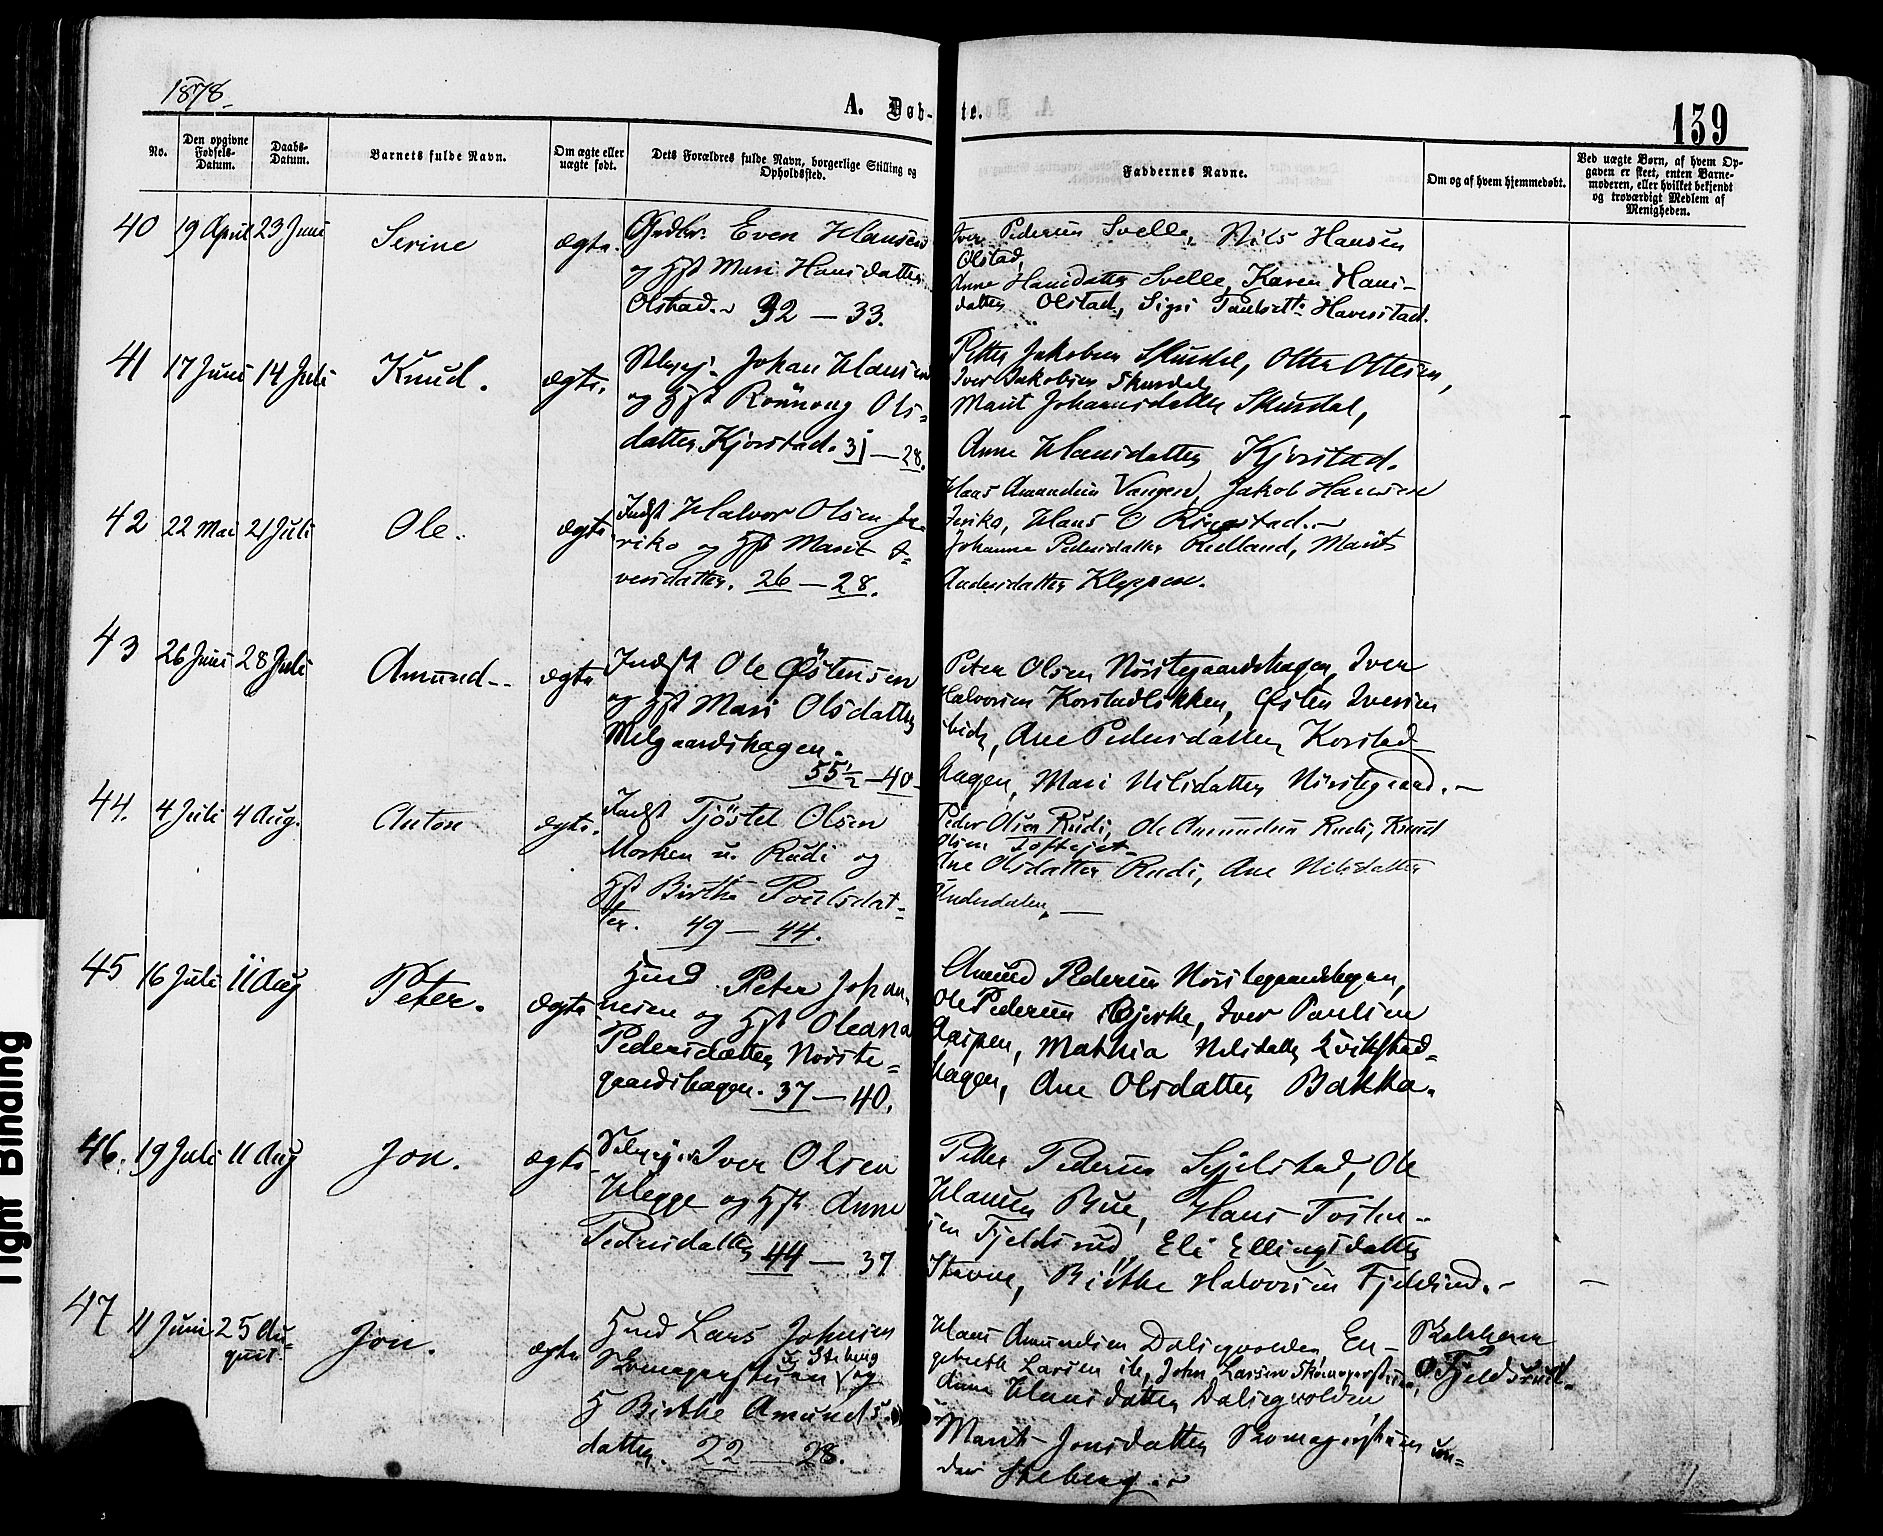 1878.
A. Døb-te.
139
No.
Den opgivne Fødsels-Datum.
Daabs-Datum.
Barnets fulde Navn.
Om ægte eller uægte født.
Dets Forældres fulde Navn, borgerlige Stilling og Opholdssted.
Faddernes Navne.
Om og af hvem hjemmedøbt.
Ved uægte Børn, af hvem Opgaven er skeet, enten Barnemoderen, eller hvilket bekjendt og troværdigt Medlem af Menigheden.
40 19 April 23 Juni Serine ægte.
Even Hansen
og Hst Mari Hansdatter
Olstad. 32 — 33.
Iver Pedersen Svelle, Nils Hansen
Olstad,
Anne Hansdatter Svelle, Karen Hans-
datter Olstad, Sigri Havenstad.
41 17 Juni 14 Juli Knud. ægte.
Selvej. Johan Hansen
og Hst Rönnoug Ols-
datter Kjorstad. 31 — 28.
Petter Jakobsen Skurdal, Otter Olsen,
Iver Jakobsen Skurdal,
Marit Johannsdatter Skurdal,
Anne Hansdatter Kjorstad.
42 22 Mai 21 Juli Ole. ægte
Indst Halvor Olsen Je-
riko og Hst Marit I-
versdatter. 26 — 28.
Hans Amundsen Vangen, Jakob Hansen
Jeriko, Hans O Ringstad.
Johanne Pedersdatter Rudland, Marit
Andersdatter Kleppen.
43 26 Juni 28 Juli Amund ægte
Indst Ole Østensen
og Hst Mari Olsdatter
Melgaardshagen.
55½ — 40
Peter Olsen Nörstegaardshagen, Iver
Halvorsen Korstadlökken, Østen Iversen
ibid, Ane Pedersdatter Korstad-
hagen, Mari Nilsdatter Nörstegaard.
44. 4 Juli 4 Aug. Anton ægte.
Indst Tjöstel Olsen
Morken u. Rudi og
Hst Birthe Poulsdat-
ter. 49 — 44.
Peder Olsen Rudi, Ole Amundsen Rudi, Knud
Olsen Toftejet
Ane Olsdatter Rudi, Ane Nilsdatter
45 16 Juli 11 Aug Peter. ægte
Hmd Peter Johan-
nesen og Hst Oleana
Pedersdatter Nörste-
gaardshagen. 37 — 40.
Amund Pedersen Nörstegaardshagen,
Ole Pedersen Bjerke, Iver Paulsen
Aaspen, Mathia Nilsdatter Kvikstad-
hagen, Ane Olsdatter Bakka.
46. 19 Juli 11 Aug Jon. ægte
Selvej. Iver Olsen
Klegge og Hst Anne
Pedersdatter 44 — 37
Petter Pedersen Sejelstad, Ole
Hansen Bue, Hans Tosten-
sen Fjeldsrud, Eli Ellingsdatter
Stavne, Birthe Halvorsen Fjeldsrud.
47 11 Juni 25 Au-
gust. Jon. ægte
Hmd Lars Johnsen
Skomagerstuen u Steberg og
H Birthe Amunds-
datter. 22 — 28.
Hans Amundsen Dalsegvolden, En-
gebreth Larsen ib, John Larsen Skomagerstuen,
Anne Hansdatter Dalsegvolden
Marit Jonsdatter Skomagerstuen un-
der Steberg.
Skoleholder
O. Fjeldsrud.
Tight Binding